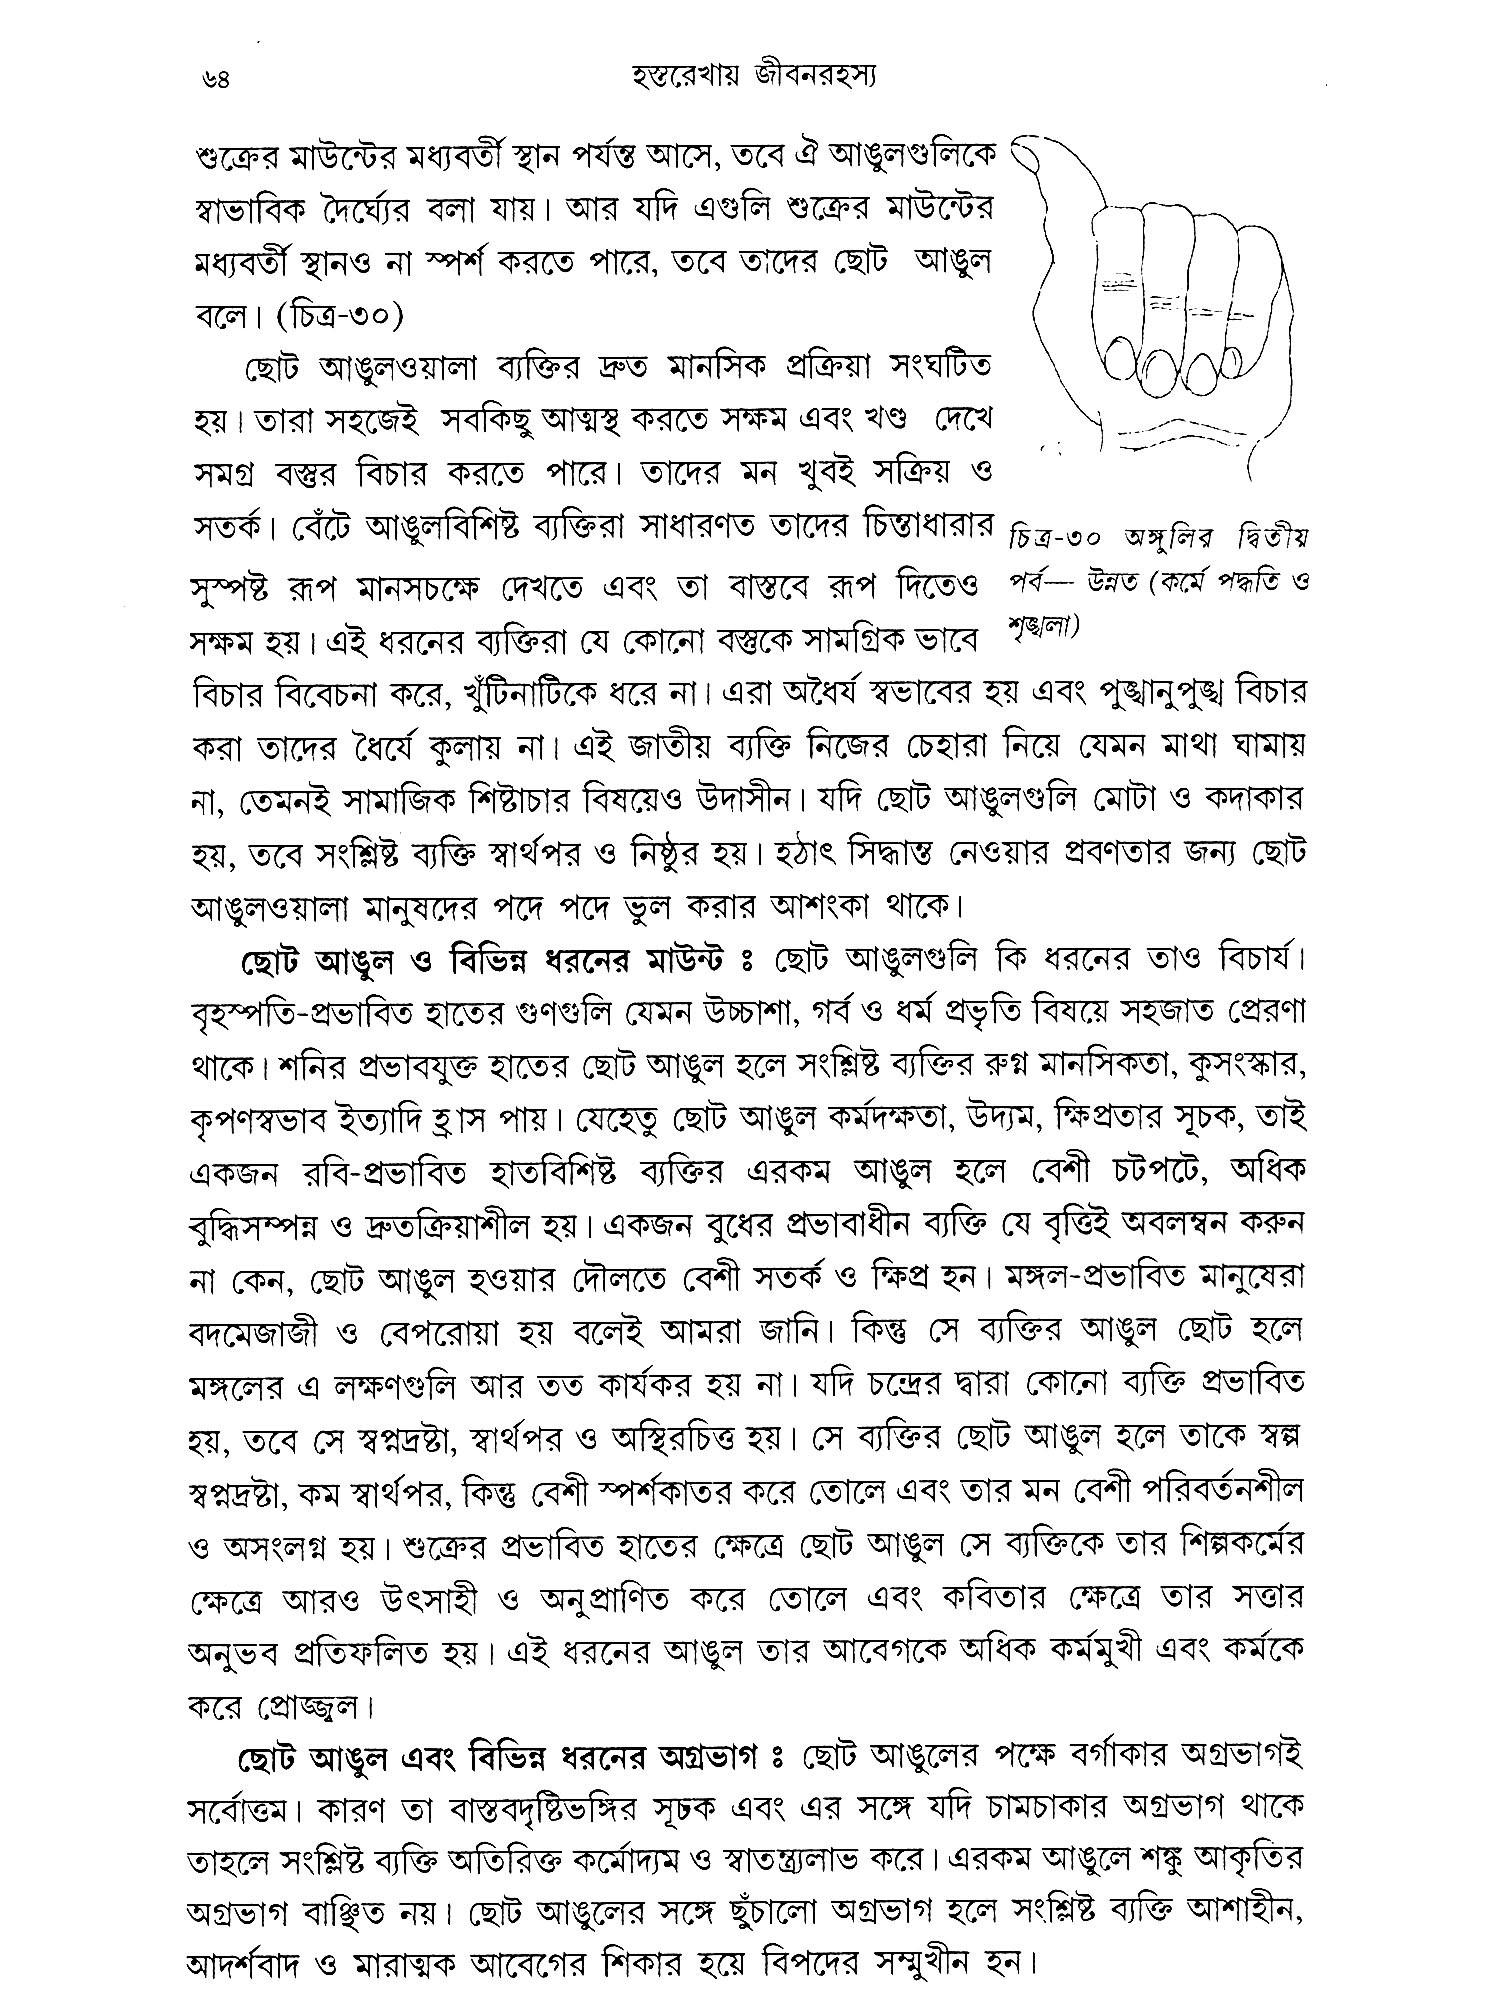 ৬৪
হস্তরেখায় জীবনরহস্য
শুক্রের মাউন্টের মধ্যবর্তী স্থান পর্যন্ত আসে, তবে ঐ আঙুলগুলিকে
স্বাভাবিক দৈর্ঘ্যের বলা যায়। আর যদি এগুলি শুক্রের মাউন্টের
মধ্যবর্তী স্থানও না স্পর্শ করতে পারে, তবে তাদের ছোট আঙুল
বলে। (চিত্র-৩০)
ছোট আঙুলওয়ালা ব্যক্তির দ্রুত মানসিক প্রক্রিয়া সংঘটিত
হয়। তারা সহজেই সবকিছু আত্মস্থ করতে সক্ষম এবং খণ্ড দেখে
সমগ্র বস্তুর বিচার করতে পারে। তাদের মন খুবই সক্রিয় ও
সতর্ক। বেঁটে আঙুলবিশিষ্ট ব্যক্তিরা সাধারণত তাদের চিন্তাধারার
সুস্পষ্ট রূপ মানসচক্ষে দেখতে এবং তা বাস্তবে রূপ দিতেও
সক্ষম হয়। এই ধরনের ব্যক্তিরা যে কোনো বস্তুকে সামগ্রিক ভাবে
চিত্র-৩০ অঙ্গুলির দ্বিতীয়
পর্ব— উন্নত (কর্মে পদ্ধতি ও
শৃঙ্খলা)
বিচার বিবেচনা করে, খুঁটিনাটিকে ধরে না। এরা অধৈর্য স্বভাবের হয় এবং পুঙ্খানুপুঙ্খ বিচার
করা তাদের ধৈর্যে কুলায় না। এই জাতীয় ব্যক্তি নিজের চেহারা নিয়ে যেমন মাথা ঘামায়
না, তেমনই সামাজিক শিষ্টাচার বিষয়েও উদাসীন। যদি ছোট আঙুলগুলি মোটা ও কদাকার
হয়, তবে সংশ্লিষ্ট ব্যক্তি স্বার্থপর ও নিষ্ঠুর হয়। হঠাৎ সিদ্ধান্ত নেওয়ার প্রবণতার জন্য ছোট
আঙুলওয়ালা মানুষদের পদে পদে ভুল করার আশংকা থাকে।
ছোট আঙুল ও বিভিন্ন ধরনের মাউন্ট ঃ ছোট আঙুলগুলি কি ধরনের তাও বিচার্য।
বৃহস্পতি-প্রভাবিত হাতের গুণগুলি যেমন উচ্চাশা, গর্ব ও ধর্ম প্রভৃতি বিষয়ে সহজাত প্রেরণা
থাকে। শনির প্রভাবযুক্ত হাতের ছোট আঙুল হলে সংশ্লিষ্ট ব্যক্তির রুগ্ন মানসিকতা, কুসংস্কার,
কৃপণস্বভাব ইত্যাদি হ্রাস পায়। যেহেতু ছোট আঙুল কর্মদক্ষতা, উদ্যম, ক্ষিপ্রতার সূচক, তাই
একজন রবি-প্রভাবিত হাতবিশিষ্ট ব্যক্তির এরকম আঙুল হলে বেশী চটপটে, অধিক
বুদ্ধিসম্পন্ন ও দ্রুতক্রিয়াশীল হয়। একজন বুধের প্রভাবাধীন ব্যক্তি যে বৃত্তিই অবলম্বন করুন
না কেন, ছোট আঙুল হওয়ার দৌলতে বেশী সতর্ক ও ক্ষিপ্র হন। মঙ্গল-প্রভাবিত মানুষেরা
বদমেজাজী ও বেপরোয়া হয় বলেই আমরা জানি। কিন্তু সে ব্যক্তির আঙুল ছোট হলে
মঙ্গলের এ লক্ষণগুলি আর তত কার্যকর হয় না। যদি চন্দ্রের দ্বারা কোনো ব্যক্তি প্রভাবিত
হয়, তবে সে স্বপ্নদ্রষ্টা, স্বার্থপর ও অস্থিরচিত্ত হয়। সে ব্যক্তির ছোট আঙুল হলে তাকে স্বল্প
স্বপ্নদ্রষ্টা, কম স্বার্থপর, কিন্তু বেশী স্পর্শকাতর করে তোলে এবং তার মন বেশী পরিবর্তনশীল
ও অসংলগ্ন হয়। শুক্রের প্রভাবিত হাতের ক্ষেত্রে ছোট আঙুল সে ব্যক্তিকে তার শিল্পকর্মের
ক্ষেত্রে আরও উৎসাহী ও অনুপ্রাণিত করে তোলে এবং কবিতার ক্ষেত্রে তার সত্তার
অনুভব প্রতিফলিত হয়। এই ধরনের আঙুল তার আবেগকে অধিক কর্মমুখী এবং কর্মকে
করে প্রোজ্জ্বল।
ছোট আঙুল এবং বিভিন্ন ধরনের অগ্রভাগ ঃ ছোট আঙুলের পক্ষে বর্গাকার অগ্রভাগই
সর্বোত্তম। কারণ তা বাস্তবদৃষ্টিভঙ্গির সূচক এবং এর সঙ্গে যদি চামচাকার অগ্রভাগ থাকে
তাহলে সংশ্লিষ্ট ব্যক্তি অতিরিক্ত কর্মোদ্যম ও স্বাতন্ত্র্যলাভ করে। এরকম আঙুলে শঙ্কু আকৃতির
অগ্রভাগ বাঞ্ছিত নয়। ছোট আঙুলের সঙ্গে ছুঁচালো অগ্রভাগ হলে সংশ্লিষ্ট ব্যক্তি আশাহীন,
আদর্শবাদ ও মারাত্মক আবেগের শিকার হয়ে বিপদের সম্মুখীন হন।